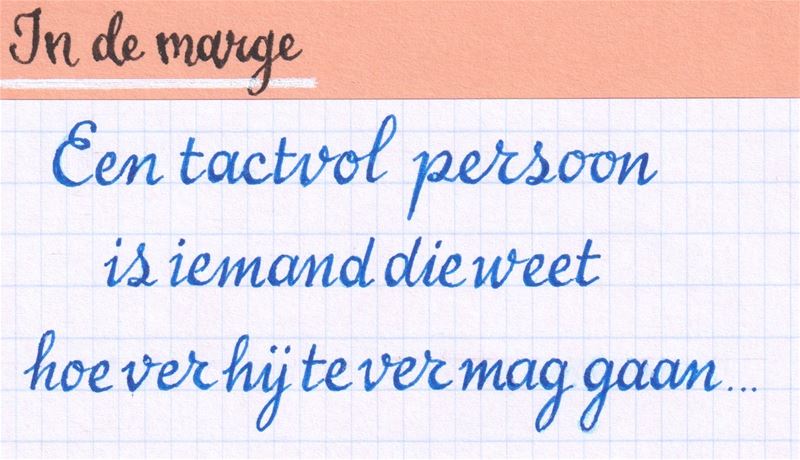 In de marge
Een tactvol persoon
is iemand die weet
hoe ver hij te ver mag gaan...